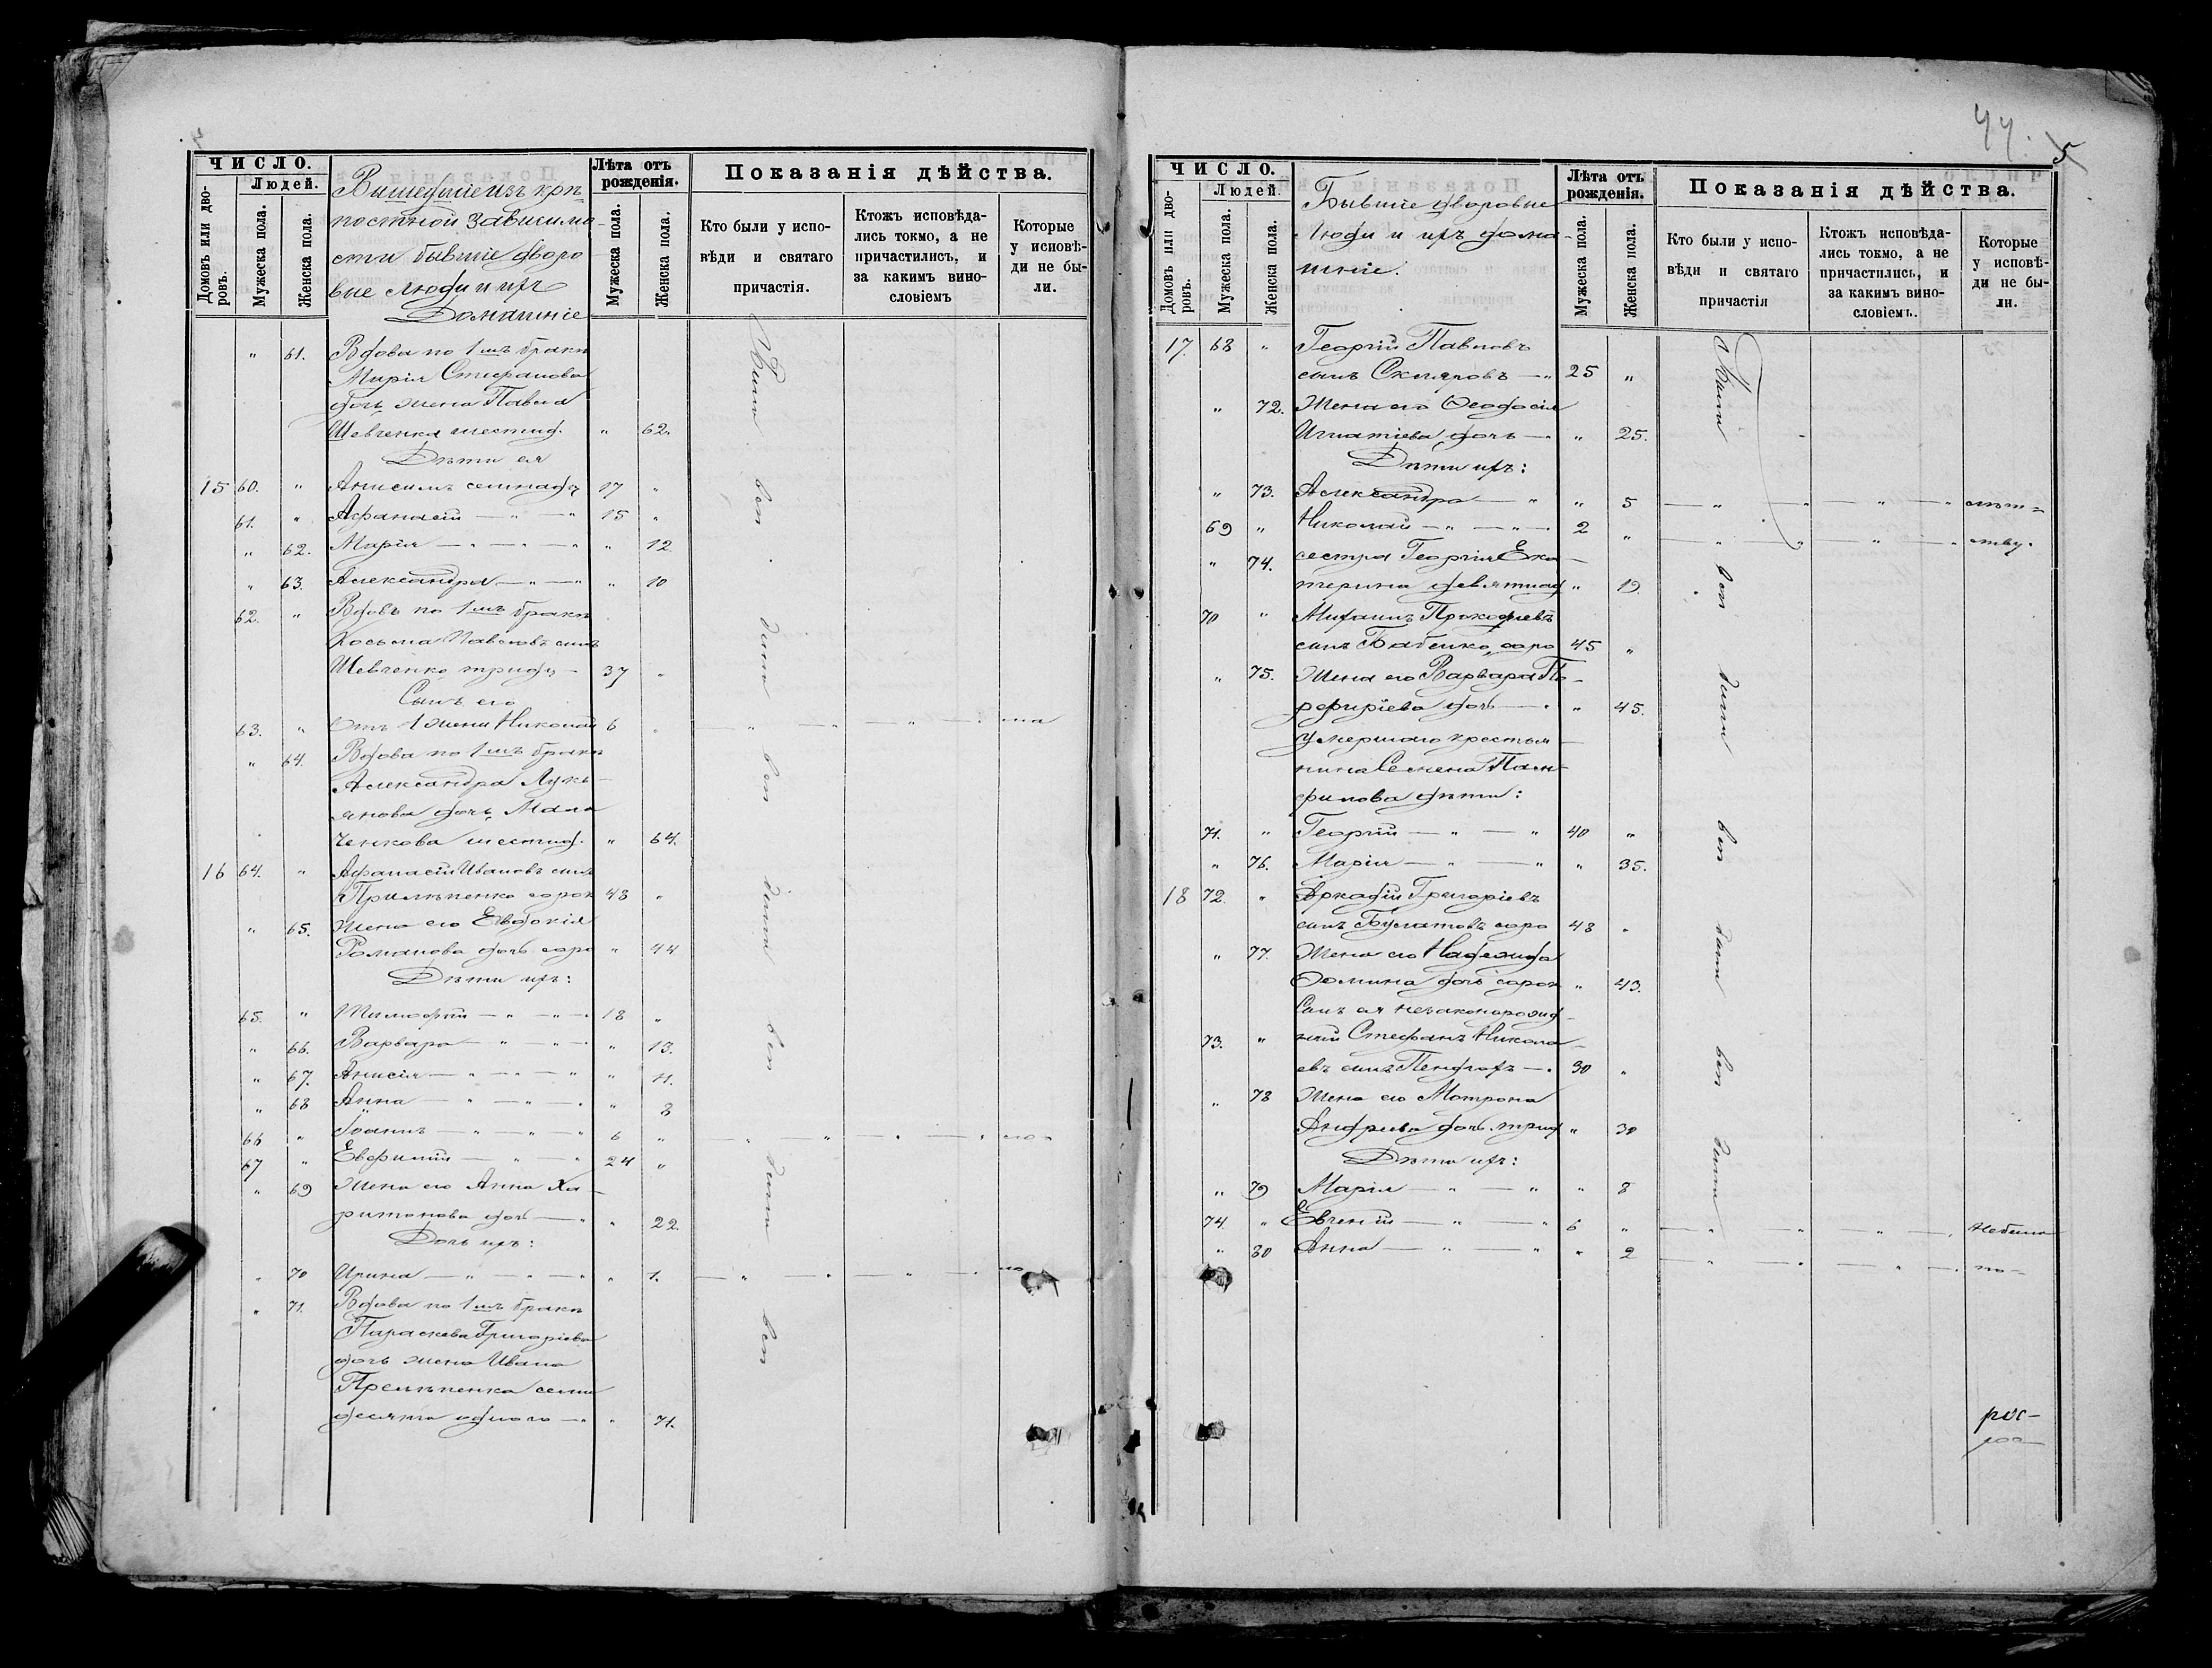 ЧИСЛО.
Людей.
Домовъ или дворовъ.
Мужеска пола.
Женска пола.
Вышедшіе изъ крѣ-
постной зависимо-
сти бывшіе дворо-
вые люди и ихъ
Домашніе
Лѣта отъ рожденія.
Мужеска пола.
Женска пола.
Показанія дѣйства.
Кто были у испо-
вѣди и святаго
причастія.
Ктожъ исповѣда-
лись токмо, а не
причастились, и
за какимъ вино-
словіемъ
Которые
у исповѣ-
ди не бы-
ли.
" 61. Вдова по 1мъ бракѣ
Марія Стефанова
дочь жена Павла
Шевченка шестид. " 62.
Дѣти ея
15 60. " Анисимъ семнадц 17 "
61. " Афанасій — " — " 15 "
" 62. Марія — " — " — " " 12
" 63. Александра — " — " " 10
62. " Вдовъ по 1мъ бракѣ
Косьма Павловъ сынъ
Шевченко тридц - 37 "
Сынъ его
63. " Отъ 1 жены Николай 6 " — " — " — " — "
" 64. Вдова по 1мъ бракѣ
Александра Лукь-
янова дочь Мала
ченкова шестид. " 64.
16 64. " Афанасій Ивановъ сынъ
Прилѣпенко сорок 48 "
" 65. Жена его Евдокія
Романова дочь соро " 44
Дѣти ихъ:
65. " Тимофей — " — " — " 18 "
" 66. Варвара — " — " — " " 13.
" 67. Анисія — " — " — " " 11.
" 68 Анна — " — " — " " 8
66 " Іоаннъ — " — " — " 6 " — " — " — " — "
67 " Евфимій — " — " 24 "
" 69 Жена его Анна Ха-
ритонова дочь — " " 22.
Дочь ихъ:
" 70 Ирина — " — " — " " 1. — " — " — " — "
" 71. Вдова по 1мъ бракѣ
Параскева Григоріева
дочь жена Ивана
Прелѣпенка семи
десяти одного — " " 71.
Были
44.
5
ЧИСЛО.
Людей
Домовъ или дворовъ.
Мужеска пола.
Женска пола.
Бывшіе дворовые
Люди и ихъ дома-
шніе.
Лѣта отъ рожденія.
Мужеска пола.
Женска пола.
Показанія дѣйства.
Кто были у испо-
вѣди и святаго
причастія
Ктожъ исповѣда-
лись токмо, а не
причастились, и
за какимъ вино-
словіемъ.
Которые
у исповѣ-
ди не бы-
ли.
17. 68 " Георгій Павловъ
сынъ Скляровъ — " 25 "
" 72. Жена его Ѳеодосія
Игнатіева дочь — " " 25.
Дѣти ихъ:
" 73. Александра — " " 5 — " — " — " — "
69 " Николай — " — " 2 " — " — " — " — "
" 74. сестра Георгія Ека-
терина девятнад " 19.
70 " Михаилъ Прокофіевъ
сынъ Бабенко, соро 45 "
" 75. Жена его Варвара По-
рфиріева дочь — " " 45.
умершаго крестья-
нина Семена Пам-
филова дѣти:
71. " Георгій — " — " 40 "
" 76. Марія — " — " " 35.
18 72. " Аркадій Григоріевъ
сынъ Булатовъ соро 48 "
" 77. Жена его Надежда
Ѳомина дочь сорок " 43.
Сынъ ея незаконорожд-
73. " ный Стефанъ Никола-
евъ сынъ — " 30 "
" 78 Жена его Мотрона
Андреева дочь трид " 30
Дѣти ихъ:
" 79 Марія — " — " " 8
74. " Евгеній — " — " 6 " — " — " — " — "
" 80 Анна — " — " " 2 — " — " — " — "
Были